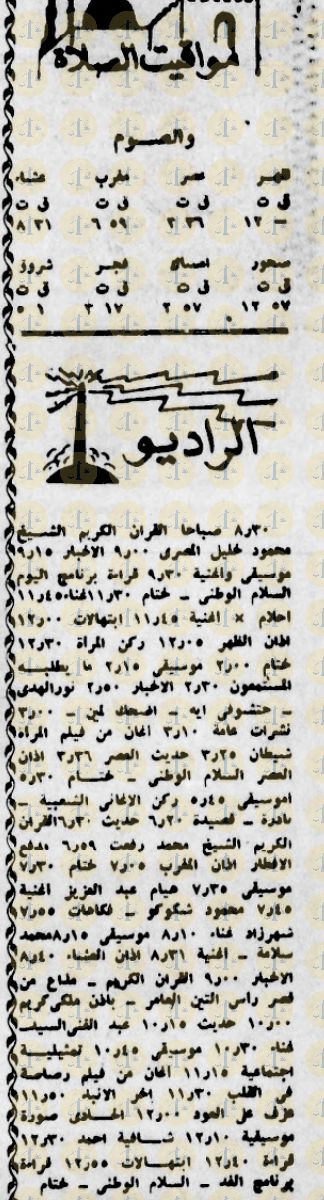 مواقيت الصلاة
والصوم
ظهر عصر مغرب عشاء
ق ت ق ت ق ت ق ت
— ١٢ ٣٦ ٣ ٥٩ ٦ ٣١ ٨
سحور امساك فجر شروق
ق ت ق ت ق ت ق ت
٥٧ ١٢ ٥٧ ٢ ١٧ ٣ ١ ٥
الراديو
٨٫٣٠ صباحا القران الكريم الشيخ
محمود خليل المصرى ٩٫٠٠ الاخبار ٩٫١٥
موسيقى واغنية ٩٫٣٠ قراءة برنامج اليوم
السلام الوطنى ـ ختام ١١٫٣٠ غناء ١١٫٤٥
احلام × اغنية ١١٫٤٥ ابتهالات ١٢٫٠٠
اذان الظهر ١٢٫٠٥ ركن المرأة ١٢٫٣٠
ختام ٢٫٠٠ موسيقى ٢٫١٥ ما يطلبـه
المستمعون ٢٫٣٠ الاخبار ٢٫٥٠ نور الهدى
ـ حتشوفى ايه ـ اضحك لمين ـ ٣٫٠٠
نشرات عامة ٣٫١٠ الحان من فيلم المرأة
شيطان ٣٫٢٥ حديث العصر ٣٫٣٦ اذان
العصر السلام الوطنى ـ ختـام ٥٫٣٠
موسيقى ٥٫٤٥ ركن الاغانى الشعبية ـ
نادرة ـ قصيدة ٦٫٢٠ حديث ٦٫٣٠ القران
الكريم الشيخ محمد رفعت ٦٫٥٩ مدفع
الافطار اذان المغرب ٧٫٠٥ ختام ٧٫٣٠
موسيقى ٧٫٣٥ هيام عبد العزيز اغنية
٧٫٤٥ محمود شكوكو ـ فكاهات ٧٫٥٥
شهرزاد غناء ٨٫١٠ موسيقى ٨٫١٥ محمد
سلامة ـ اغنية ٨٫٣١ اذان العشاء ٨٫٤٠
الاخبار ٩٫٠٠ القران الكريم ـ مذاع من
قصر راس التين العامر ـ باذن ملكى كريم
١٠٫٠٠ حديث ١٠٫١٥ عبد الغنى السيد
غناء ١٠٫٣٠ موسيقى ١٠٫٤٥ تمثيليـة
اجتماعية ١١٫١٥ الحان من فيلم رصاصة
فى القلب ١١٫٣٠ اخر الانباء ١١٫٥٠
عزف على العود ١٢٫٠٠ صورة
موسيقية ١٢٫١٠ شـافية احمد ١٢٫٣٠
قراءة ١٢٫٤٠ ابتهـالات ١٢٫٥٥ قراءة
برنامج الغد ـ السلام الوطنى ـ ختام